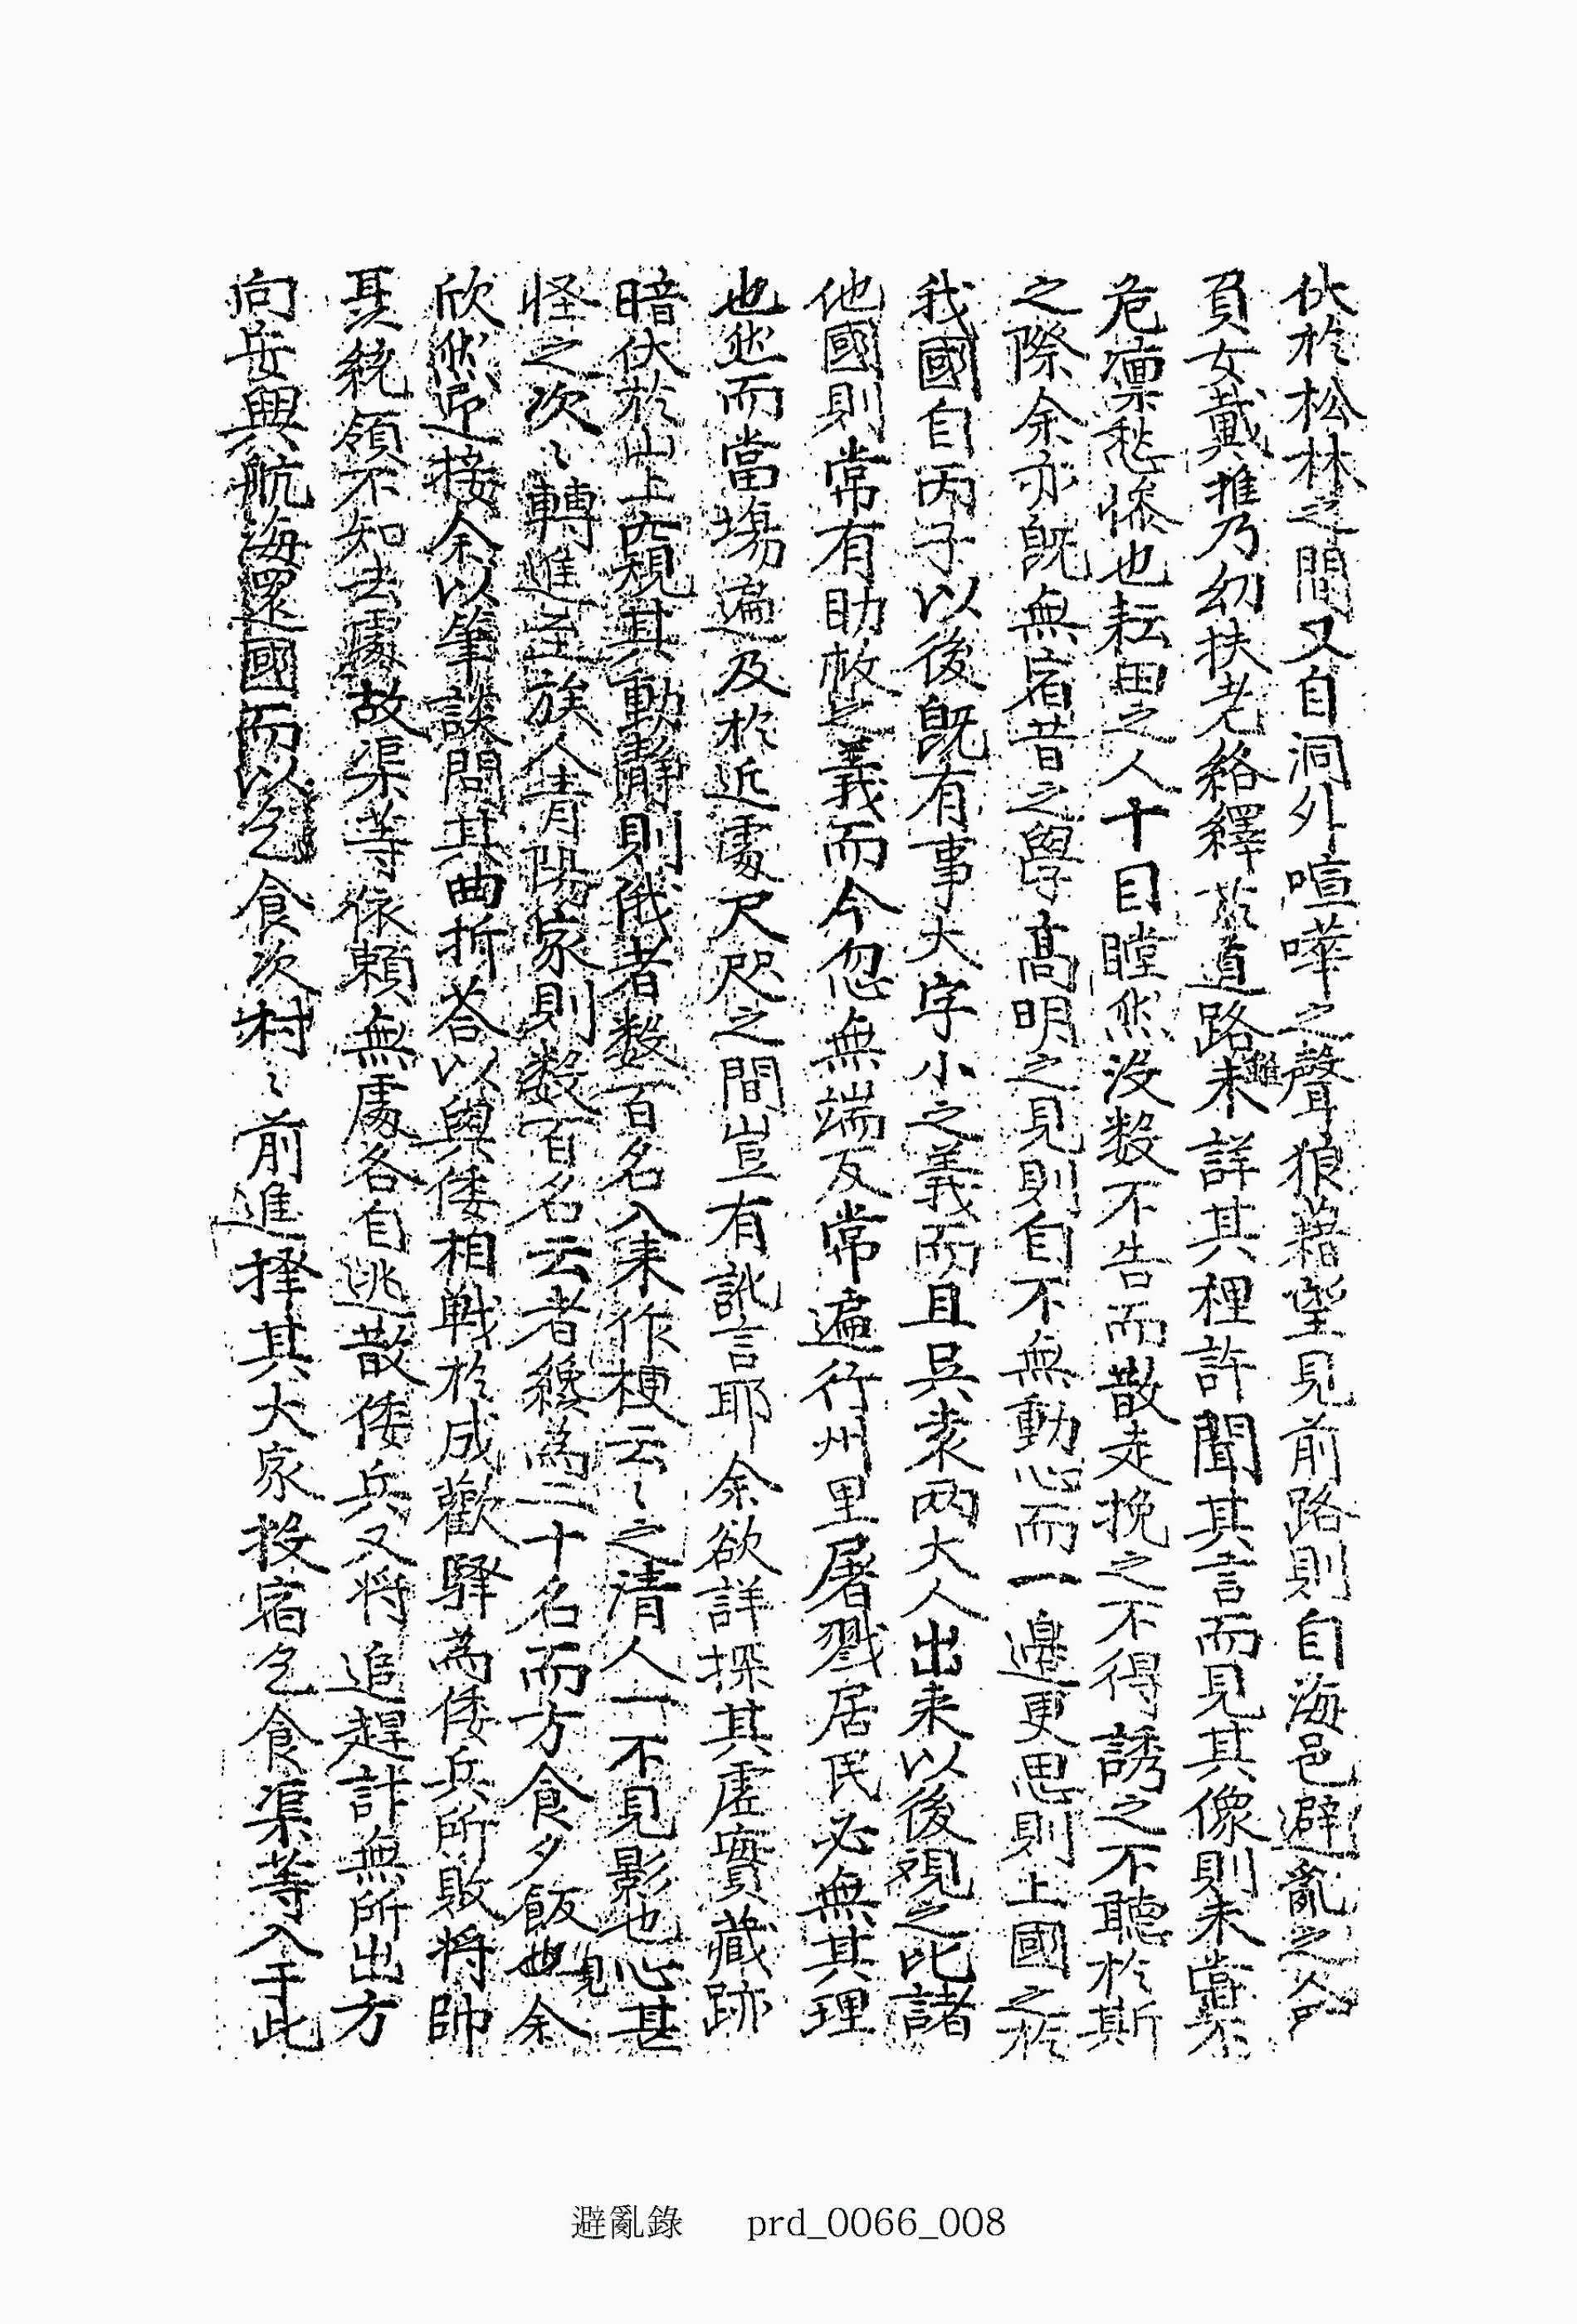 伏於松林之間又自洞外喧嘩之聲狼藉望見前路則自海邑避亂之人
負女戴携乃幼扶老絡繹於道路雖未詳其裡許聞其言而見其像則未嘗不
危懔愁慘也耘田之人十目瞠然没数不告而散走挽之不得誘之不聽於斯
之際余亦旣無宿昔之學高明之見則自不無動心而一邊更思則上國之於
我國自丙子以後旣有事大字小之義而且吳袁兩大人出来以後視之此諸
他國則常有助救之義而今忽無端反常遍行州里屠戮居民必無其理
也然而當塲遍及於近處尺咫之間豈有訛言耶余欲詳探其虛實藏跡
暗伏於山上窺其動靜則俄者数百名入来作梗云ゝ之清人一不見影也心甚
怪之次ゝ轉進至族人靑陽家則数百名云者纔為二十名而方食夕飯也見余
欣然迎接余以筆談問其曲折答以與倭相戰於成歡驛為倭兵所敗將帥
聶統領不知去處故渠等依賴無處各自逃散倭兵又将追趕計無所出方
向安興航海還國而以乞食次村ゝ前進擇其大家投宿乞食渠等入于此